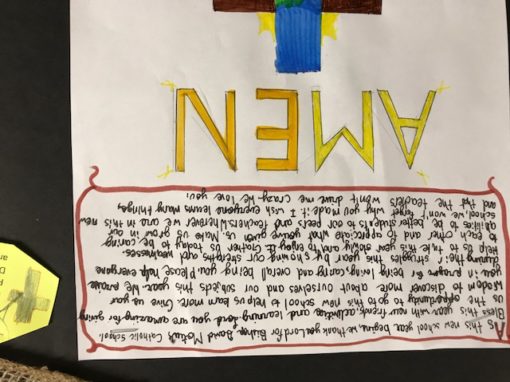 As this new school year begins we thank you Lord for Bishop David Motiuk Catholic School.
Bless this year with new friends, activities, and learning. Lord you are amazing for giving
us the opportunity to go to this new school to help us learn more. Give us your
wisdom to discover more about ourselves and our subjects this year. We praise
you in prayers for being loving, caring and overall being you. Please help everyone
during their struggles this year by showing our strengths and weaknesses.
Help us to take this year slowly and to enjoy it. Gather us today by being caring
to each other and to appreciate what you've given us. Make us grow in our
abilities to be better students to our peers and teachers. Wherever we are in this new
school, we won't forget why you made it. I wish everyone learns many things,
and that the teachers won't drive me crazy. We love you,
AMEN